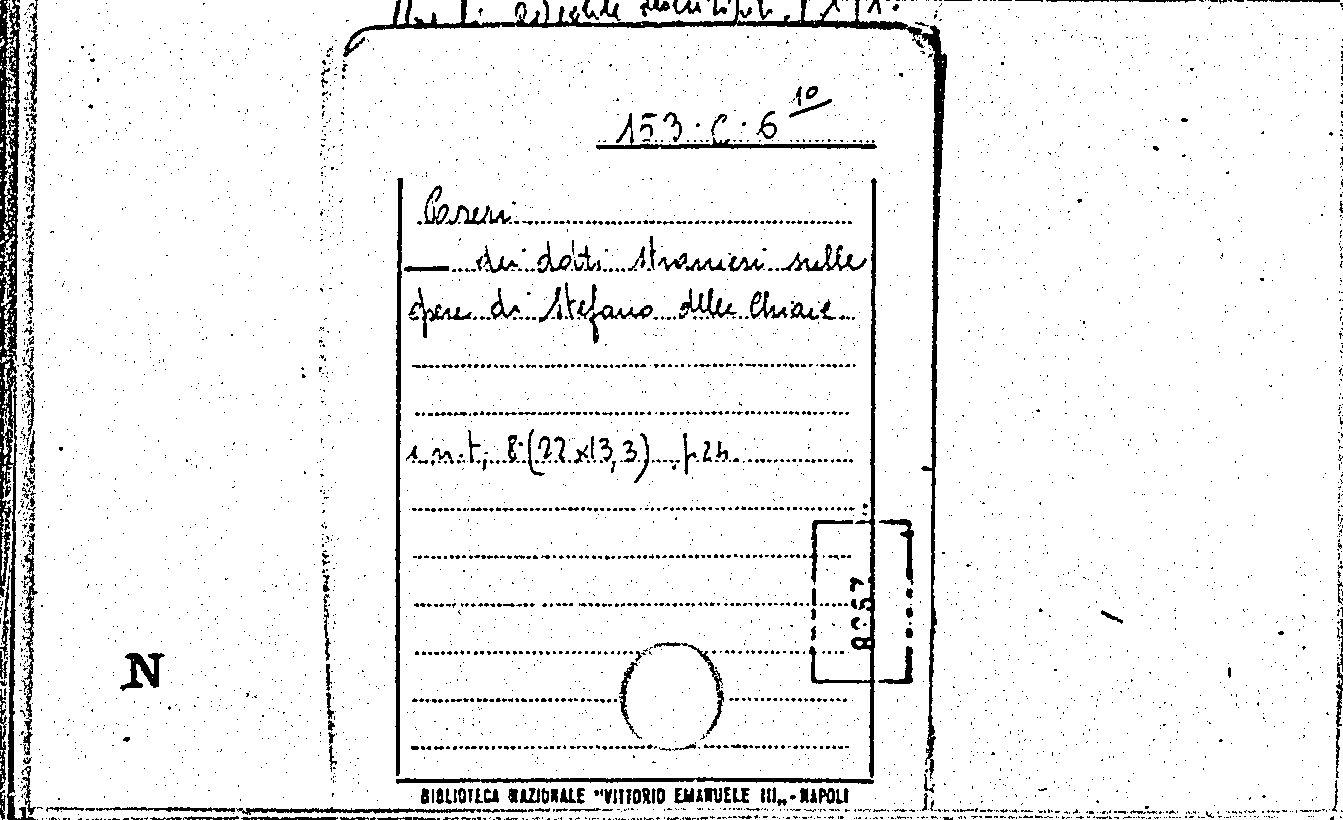 153·C·6 10
Pareri
— dei dotti stranieri sulle
opere di Stefano delle Chiaie.
s.n.t., 8° (22x13,3) p. 24.
N
BIBLIOTECA NAZIONALE "VITTORIO EMANUELE III„ - NAPOLI